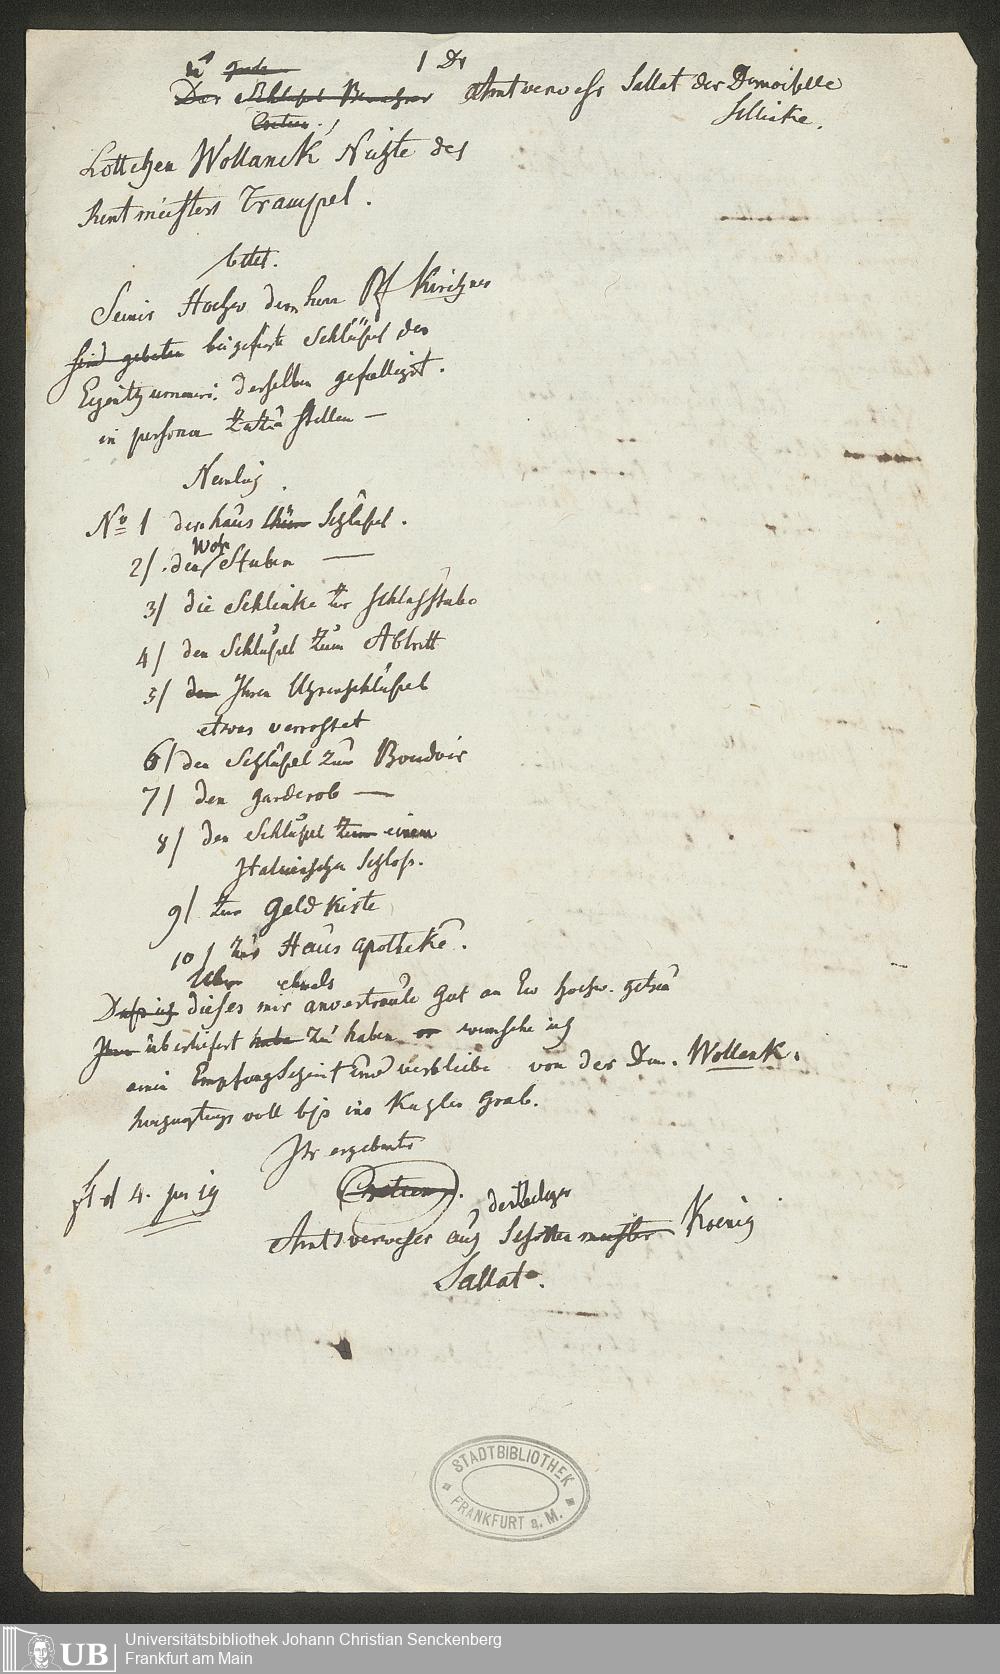 1 Dr
Der Schlüssel Bewahrer Amtverweser Sallat der Demoiselle
Schlicke.
Lottchen Wollanck Nichte des
Rentmeisters Trampel.
bittet.
Seiner Hochw dem herr Pf Kirchner
sind gebeten beigefügte Schlüssel der
derselben gefälligst.
in persona stellen —
Nemlich
No 1 den haus thür Schlüssel.
2/ den Woh Stuben —
3/ die Schlinke zur schlafstube
4/ den Schlüssel zum Abtritt
5/ den Ihren Uhrenschlüssel
etwas verrostet
6/ den Schlüssel zum Boudoir
7/ den garderob —
8/ den Schlüssel zum einem
Italienischen Schloss.
9/ zur Geld Kiste
10/ zur Haus apotheke.
dieses mir anvertraute Gut an Ew hochw. getreu
überliefert habe zu haben wünsche ich
einen Empfangschein verbleibe von der Dm. Wollank.
voll bis ins Kuzles Grab.
Ihr ergebenster
4.
Amtsverweser auch Schotten meister Koenig
Sallat.
STADTBIBLIOTHEK
FRANKFURT a. M.
UB
Universitätsbibliothek Johann Christian Senckenberg
Frankfurt am Main